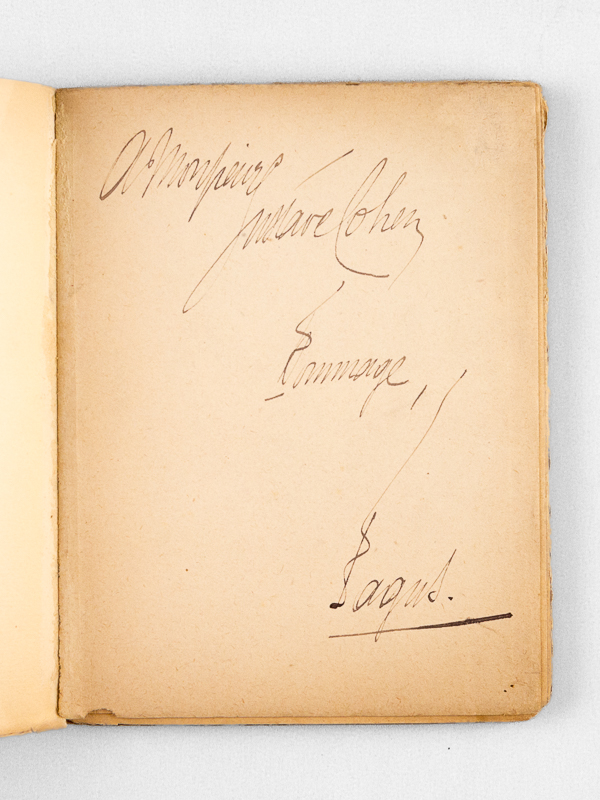 A Monsieur
Gustave Cohen
Hommage,
Fagus.